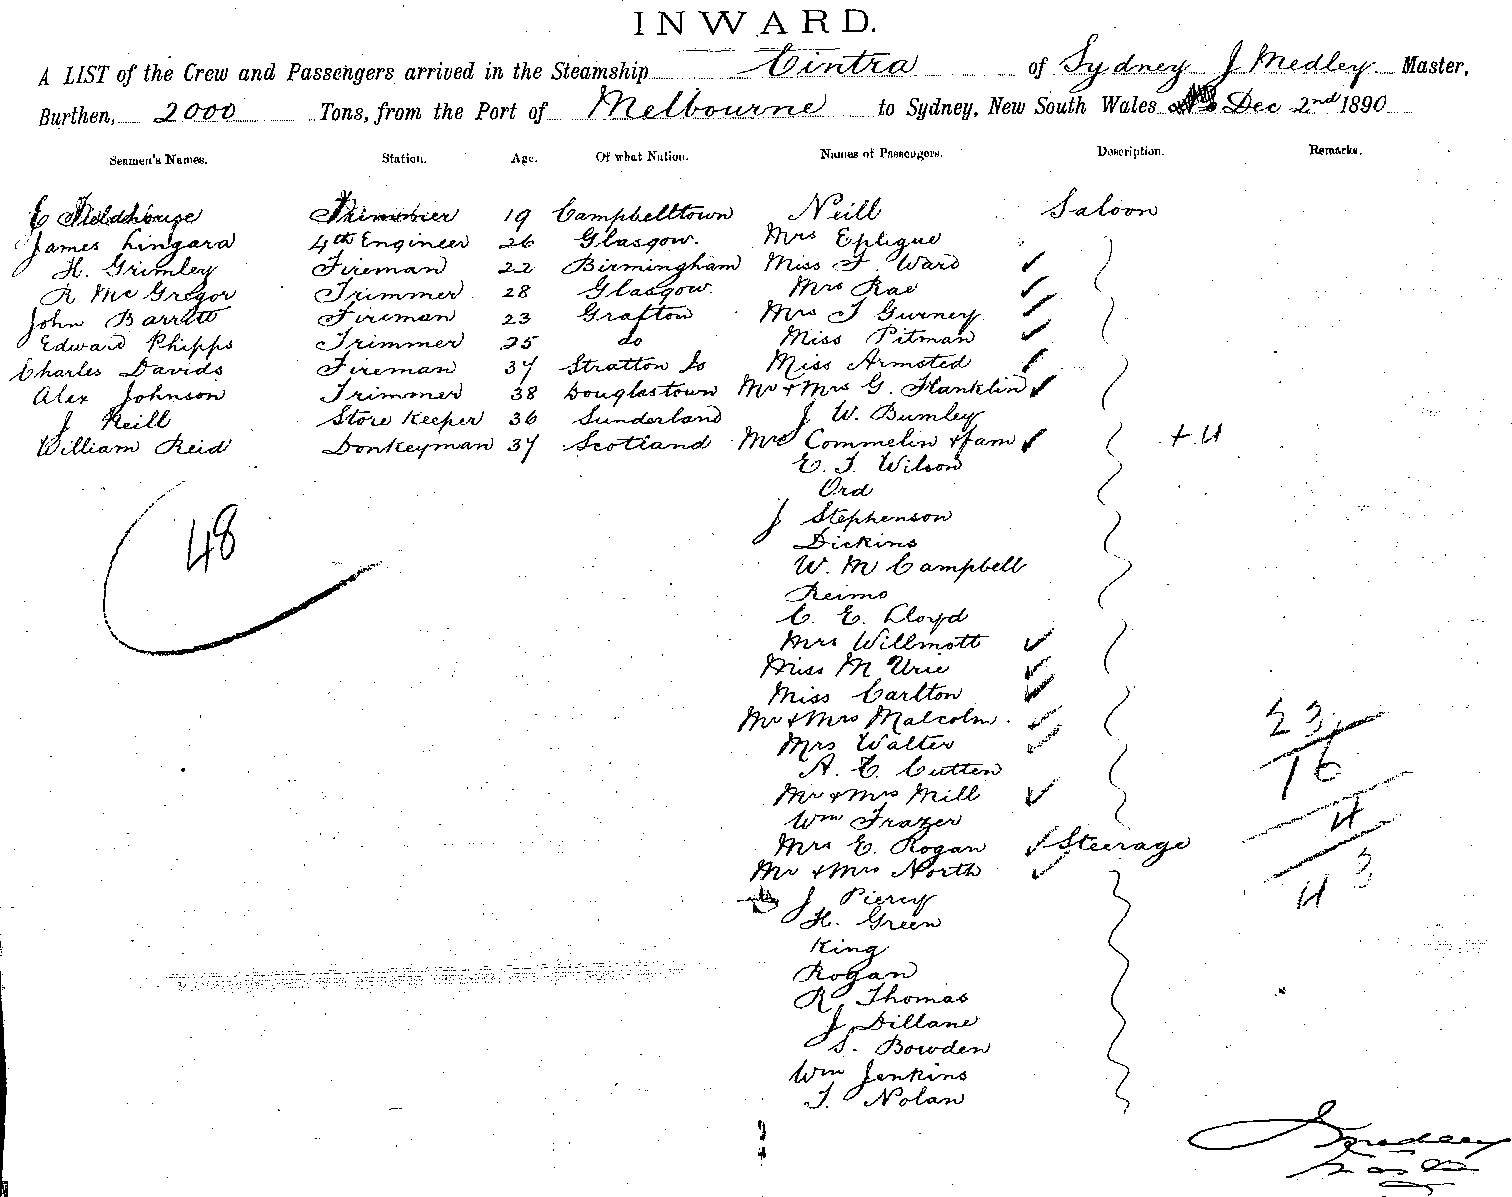 INWARD.
A LIST of the Crew and Passengers arrived in the Steamship Cintra of Sydney J Medley Master,
Burthen, 2000 Tons, from the Port of Melbourne to Sydney, New South Wales Dec 2nd 1890
Seamen's Names. Station. Age. Of what Nation. Names of Passengers. Description. Remarks.
C Fieldhouse Trimmer 19 Campbelltown Neill Saloon
James Lingard 4th Engineer 26 Glasgow. Mrs Eplique
H. Grimley Fireman 22 Birmingham Miss F. Ward ✓
R McGregor Trimmer 28 Glasgow. Mrs Rae ✓
John Barritt Fireman 23 Grafton Mrs J Gurney ✓
Edward Phipps Trimmer 25 do Miss Pitman ✓
Charles Davids Fireman 37 Stratton Is Miss Armsted ✓
Alex Johnson Trimmer 38 Douglastown Mr & Mrs G. Franklin ✓
J Neill Store Keeper 36 Sunderland J. W. Bumley
William Reid Donkeyman 37 Scotland Mrs Commelin & fam ✓ + 4
E. J. Wilson
Ord
J Stephenson
Dickins
48
W. M Campbell
Reimo
C. E. Lloyd
Mrs Willmott ✓
Miss M Urie ✓
Miss Carlton ✓
Mr & Mrs Malcolm. ✓ 23
Mrs Walter ✓
A. E. Cutten 16
Mr & Mrs Mill ✓
Wm Frazer 4
Mrs E. Rogan ✓ Steerage
Mr & Mrs North ✓
J Piercy 43
H. Green
King
Rogan
R Thomas
J Dillane
S. Bowden
Wm Jenkins
J. Nolan
J Medley